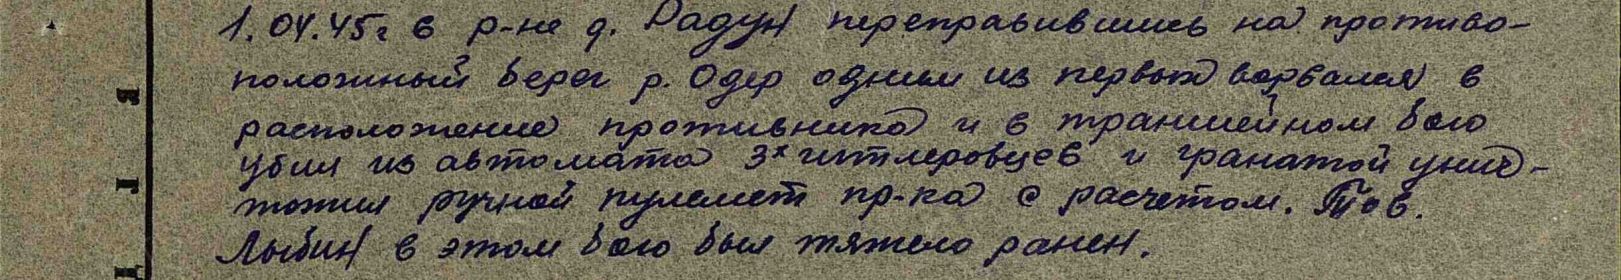 1.04.45г в р-не д. Радун переправившись на противо-
положный берег р. Одер одним из первых ворвался в
расположение противника и в траншейном бою
убил из автомата 3х гитлеровцев и гранатой унич-
тожил ручной пулемет пр-ка с расчетом. Тов.
Лыбин в этом бою был тяжело ранен.